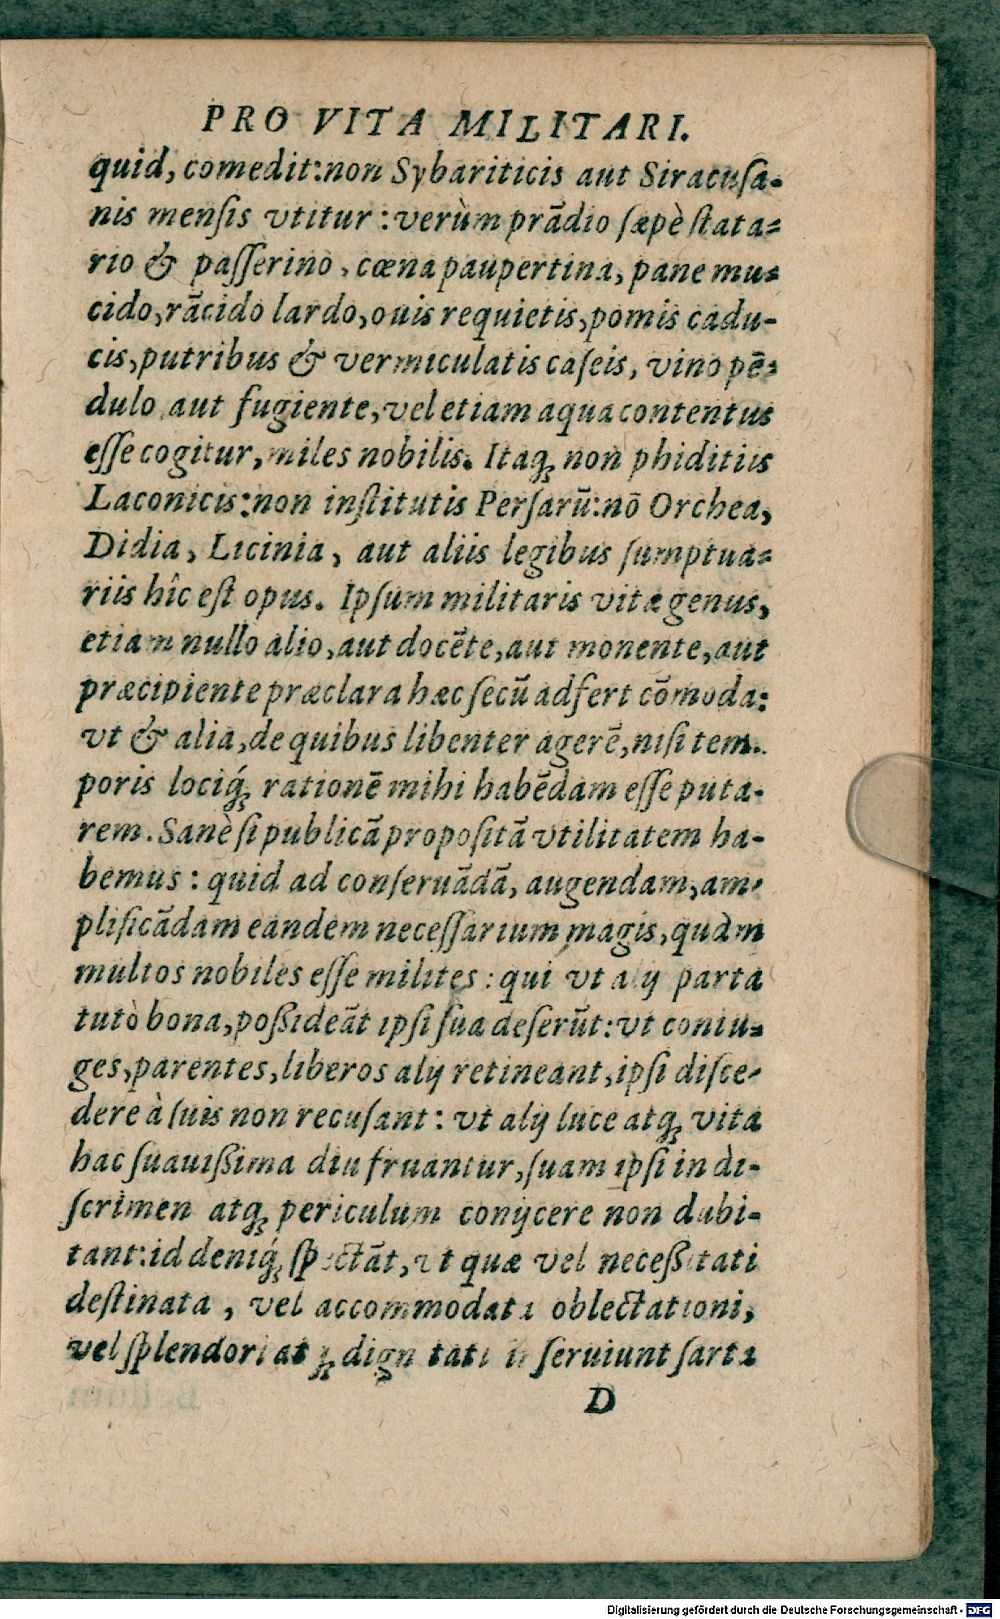 PRO VITA MILITARI.
quid, comedit: non Sybariticis aut Siracusa-
nis mensis vtitur: verùm prãdio sæpè stata-
rio & passerino, cœna paupertina, pane mu-
cido, rãcido lardo, ouis requietis, pomis cadu-
cis, putribus & vermiculatis caseis, vino pẽ-
dulo aut fugiente, vel etiam aqua contentus
esse cogitur, miles nobilis. Itaq́; non phiditiis
Laconicis: non institutis Persarũ: nõ Orchea,
Didia, Licinia, aut aliis legibus sumptua-
riis hîc est opus. Ipsum militaris vitæ genus,
etiam nullo alio, aut docẽte, aut monente, aut
præcipiente præclara hæc secũ adfert cõmoda:
vt & alia, de quibus libenter agerẽ, nisi tem-
poris lociq́; rationẽ mihi habẽdam esse puta-
rem. Sanè si publicã propositã vtilitatem ha-
bemus: quid ad conseruãdã, augendam, am-
plificãdam eandem necessarium magis, quàm
multos nobiles esse milites: qui vt alij parta
tutò bona, possideãt ipsi sua deserũt: vt coniu-
ges, parentes, liberos alij retineant, ipsi disce-
dere à suis non recusant: vt alij luce atq; vita
hac suauissima diu fruantur, suam ipsi in di-
scrimen atq; periculum conijcere non dubi-
tant: id deniq́; spectãt, vt quæ vel necessitati
destinata, vel accommodata oblectationi,
vel splendori atq; dignitati inseruiunt sarta
D
Digitalisierung gefördert durch die Deutsche Forschungsgemeinschaft - DFG